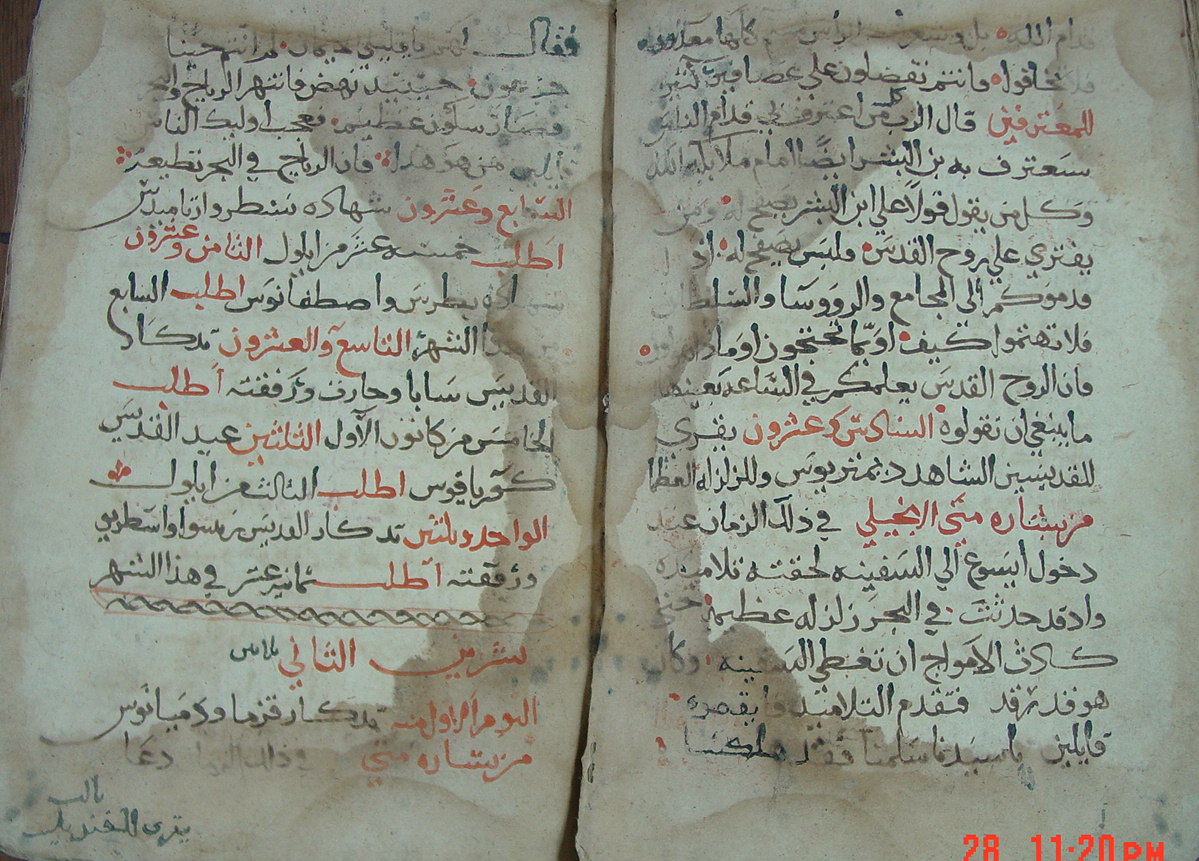 قدام الله بل وشعرت الراس كلها معدوده
فلا تخافوا فانتم تفضلون علي عصافير كثير
للمعترفين قال الرب كل من اعترف بي قدام الناس
سيعترف به بن البشر ايضًا امام ملايكة الله
وكل من يقول قولًا علي ابن البشر يصفح له ومن
يفتري علي روح القدس وليس يصفح له اذا
قدموكم الي المجامع والرووسا والسلطان
فلا تهتموا كيف او بما تحتجون او ماذا
فان الروح القدس يعلمكم في الساعه بعينها
ما ينبغي ان تقولوه السادس وعشرون يقري
للقديسين الشاهد دىمتريوس وللزلزله العظما
من بشاره متي الانجيلي في ذلك الزمان عند
دخول ايسوع الي السفينه لحقته تلاميذه
واذ قد حدثت في البحر زلزله عظيمه حتي
كادت الامواج ان تغطي السفينه وكان
هو قد رقد فتقدم التلاميذ فايقضوه
قايلين يا سيدنا سلمنا فقد هلكنا
فقال لهم يا قليلي ايمان لم انتم
جزعون حينيذ نهض فانتهر الرياح والبحر
فصار سكون عظيم فعجب اوليك الناس
قايلين من هو هدا فان الرياح في البحر تطيعه
السابع وعشرون شهاده نسطر وارتاميدس
اطلب خمسه عشر من ايلول الثامن وعشرون
شهاده بطرس واصطفانوس اطلب السابع
من هذا الشهر الناسع والعشرون تدكار
القديس سابا وحارث ورفقته اطلب
الخامس من كانون الاول الثلثين عيد القديس
كورياقوس اطلب الثالث من ايلول
الواحد وثلثين تدكار القديس واسطريو
ورفقته اطلب ثمانيه عشر في هذا الشهر
تشرين الثاني
اليوم الاول منه تدكار قزما ودميانوس
من بشاره متي في ذلك الزمان دعا